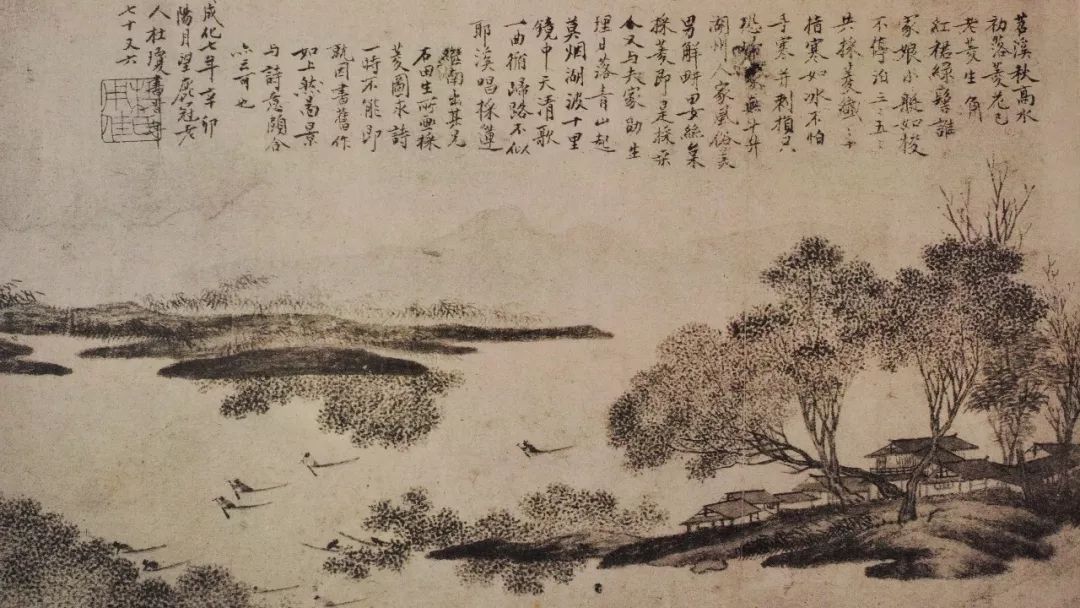 苕溪秋高水
初落菱花已
老菱生角
紅裙綠髻誰
家娘小艇如梭
不停泊三〻五〻
共採菱纖〻十
指寒如冰不怕
手寒并刺損只
恐歸家無斗升
湖州人家風俗美
男解畊田女絲枲
採菱即是採桑
人又與夫家助生
理日落青山起
莫烟湖波十里
鏡中天清歌
一曲循歸路不似
耶溪唱採蓮
繼南出其兄
石田生所画採
菱圖求詩
一時不能即
就因書舊作
如上然畵景
與詩意頗合
亦可也
成化七年辛卯
陽月望鹿冠老
人杜瓊書
七十又六